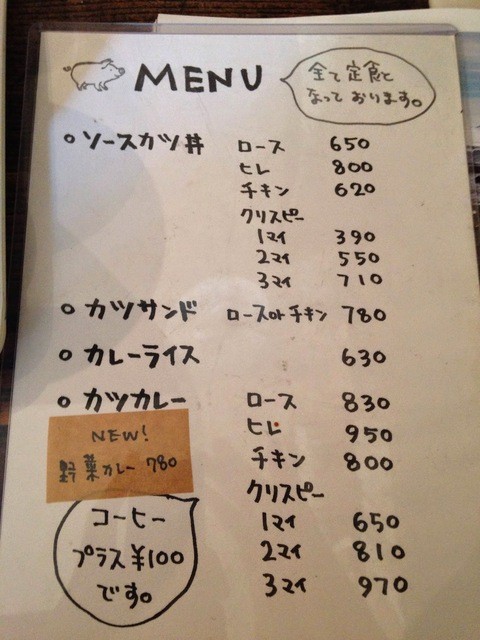 MENU
全て定食と
なっております。
○ ソースカツ丼 ロース 650
ヒレ 800
チキン 620
クリスピー
1マイ 390
2マイ 550
3マイ 710
○ カツサンド ロースorチキン 780
○ カレーライス 630
○ カツカレー ロース 830
ヒレ 950
チキン 800
クリスピー
1マイ 650
2マイ 810
3マイ 970
NEW!
野菜カレー 780
コーヒー
プラス¥100
です。